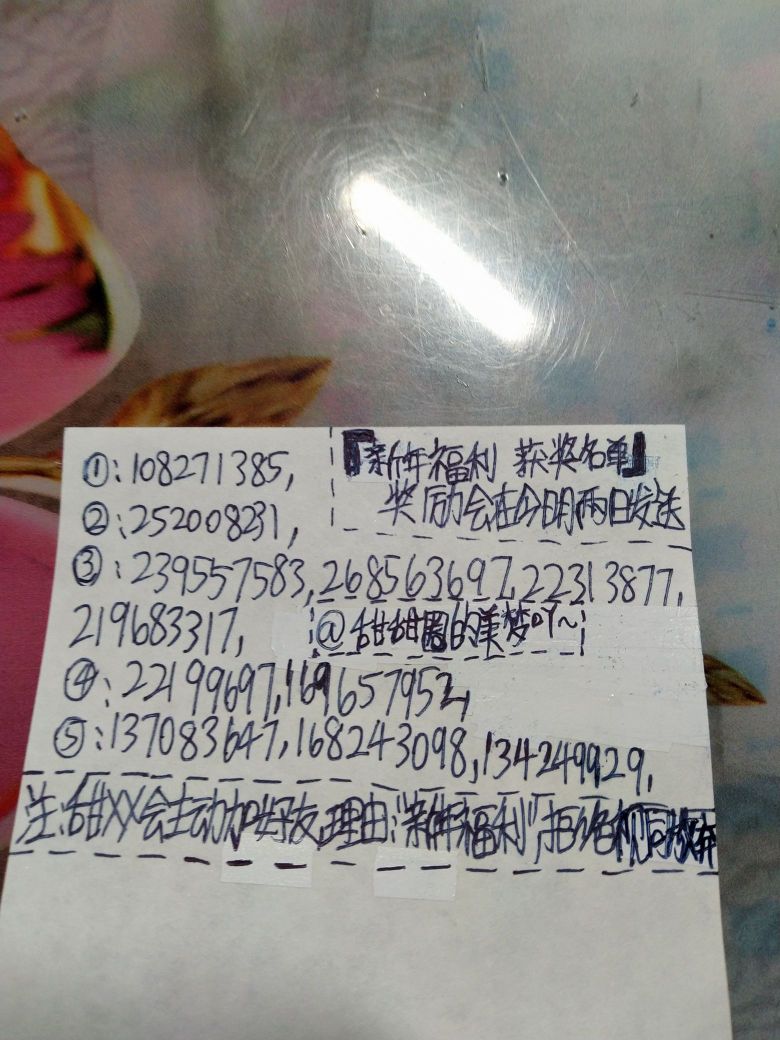 『新年福利 获奖名单』
奖励会在今明两日发送
①:108271385,
②:252008231,
③:239557583,268563697,22313877,
219683317,
@甜甜圈的美梦吖~
④:22199697,169657952,
⑤:137083647,168243098,134249929,
注:甜XX会主动加好友,理由:"新年福利",拒绝视同放弃